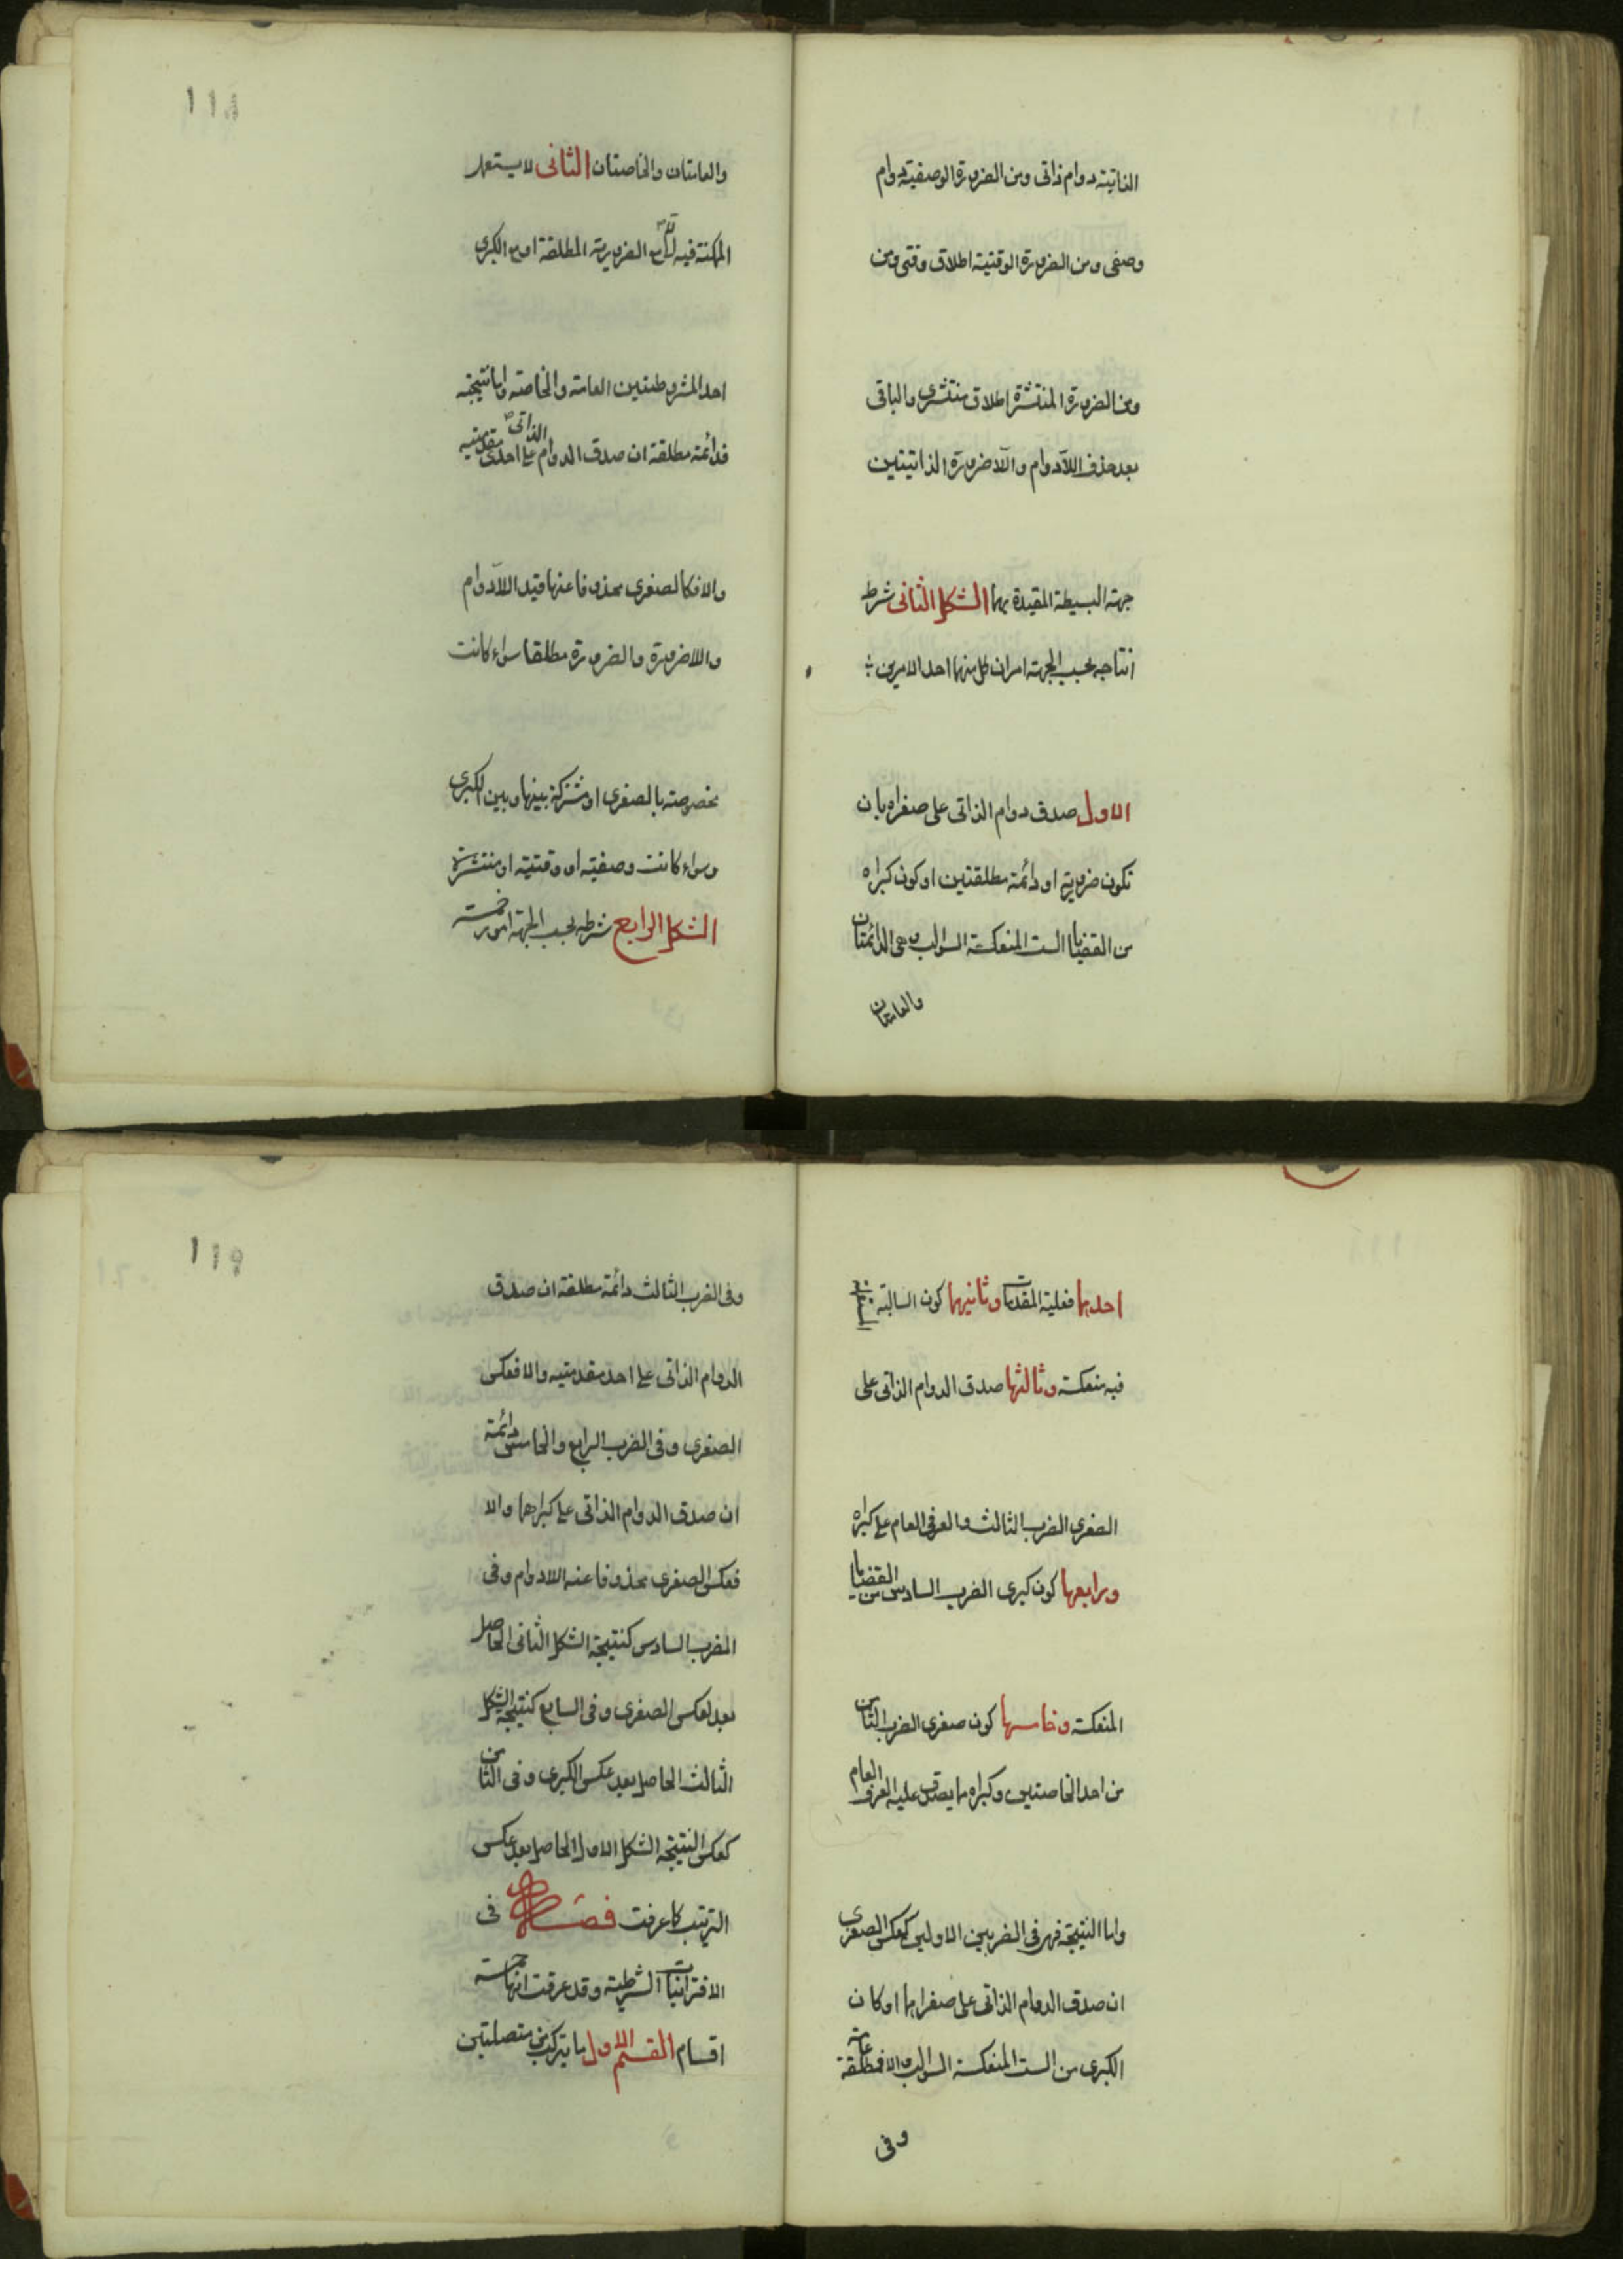 الذاتية دوام ذاتى ومن الضرورة الوصفية دوام
وصفى ومن الضرورة الوقتية اطلاق وقتى ومن
ومن الضرورة المنتشرة اطلاق منتشرى والباقى
بعد حذف اللادوام واللاضرورة الذاتيتين
جهته البسيطة المقيدة بهما الشكل الثانى شرط
انتاجه بحسب الجهته امران كل منهما احد الامرين
الاول صدق دوام الذاتى على صغراه بان
تكون ضرورية او دائمة مطلقتين او كون كبراه
من القضايا الست المنعكسة السوالب وهى الدائمتان
والعامتان
118
والعامتان والخاصتان الثانى لا يستعمل
الممكنة فيه الا مع الضرورية المطلقة او مع الكبرى
احد المشروطتين العامة والخاصة واما نتيجته
فدائمة مطلقة ان صدق الدوام الذاتى على احدى مقدمتيه
والا فكالصغرى محذوفا عنها قيد اللادوام
واللاضرورة والضرورة مطلقا سواء كانت
مخصوصة بالصغرى او مشتركة بينها وبين الكبرى
وسواء كانت وصفية او وقتية او منتشرة
الشكل الرابع شرطه بحسب الجهة امور خمسة
احدها فعلية المقدمات وثانيها كون السالبة المستعملة
فيه منعكسة وثالثها صدق الدوام الذاتى على
الصغرى الضرب الثالث والعرفى العام على كبراه
ورابعها كون كبرى الضرب السادس من القضايا
المنعكسة وخامسها كون صغرى الضرب الثامن
من احد الخاصتين وكبراه ما يصدق عليه العرف العام
واما النتيجة فهى فى الضربين الاولين كعكس الصغرى
ان صدق الدوام الذاتى على صغراهما او كان
الكبرى من الست المنعكسة السوالب والا فمطلقة عامة
وفى
119
وفى الضرب الثالث دائمة مطلقة ان صدق
الدوام الذاتى على احد مقدمتيه والا فعكس
الصغرى وفى الضرب الرابع والخامس دائمة
ان صدق الدوام الذاتى على كبراهما والا
فعكس الصغرى محذوفا عنه اللادوام وفى
الضرب السادس كنتيجة الشكل الثانى الحاصل
بعد لعكس الصغرى وفى السابع كنتيجة الشكل
الثالث الحاصل بعد عكس الكبرى وفى الثامن
كعكس النتيجة الشكل الاول الحاصل بعد عكس
الترتيب كما عرفت فصل فى
الاقترانيات الشرطية وقد عرفت انها خمسة
اقسام القسم الاول ما يتركب من متصلتين